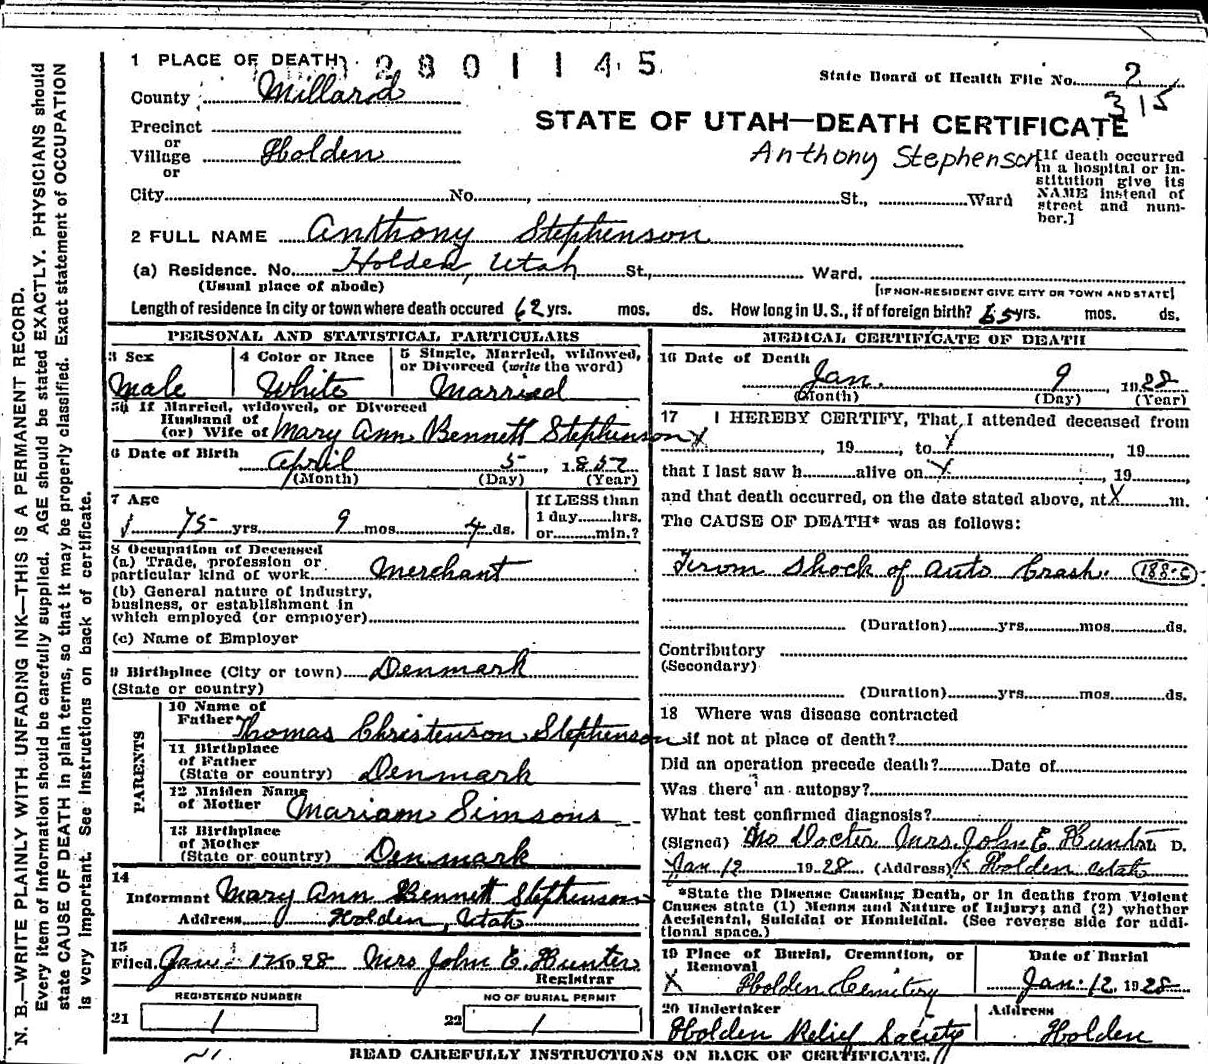 1 PLACE OF DEATH 2801145
State Board of Health File No. 2
315
County Millard
STATE OF UTAH—DEATH CERTIFICATE
Precinct
or
Village Holden
or
Anthony Stephenson
[If death occurred in a hospital or institution give its NAME instead of street and number.]
City No. , St., Ward
2 FULL NAME Anthony Stephenson
(a) Residence. No. Holden, Utah St., Ward.
(Usual place of abode) [IF NON-RESIDENT GIVE CITY OR TOWN AND STATE]
Length of residence in city or town where death occured 62 yrs. mos. ds. How long in U.S., if of foreign birth? 65 yrs. mos. ds.
PERSONAL AND STATISTICAL PARTICULARS
3 Sex
Male
4 Color or Race
White
5 Single, Married, widowed, or Divorced (write the word)
Married
5a If Married, widowed, or Divorced
Husband of
(or) Wife of Mary Ann Bennett Stephenson
6 Date of Birth April 5, 1852
(Month) (Day) (Year)
7 Age
75 yrs. 9 mos. 4 ds.
If LESS than
1 day hrs.
or min.?
8 Occupation of Deceased
(a) Trade, profession or
particular kind of work Merchant
(b) General nature of industry,
business, or establishment in
which employed (or employer)
(c) Name of Employer
9 Birthplace (City or town) Denmark
(State or country)
PARENTS
10 Name of
Father Thomas Christenson Stephenson
11 Birthplace
of Father
(State or country) Denmark
12 Maiden Name
of Mother Mariam Simsons
13 Birthplace
of Mother
(State or country) Denmark
14
Informant Mary Ann Bennett Stephenson
Address Holden, Utah
15
Filed Jan. 12 1928 Mrs John E. Hunter
Registrar
REGISTERED NUMBER
21 1
NO OF BURIAL PERMIT
22 1
MEDICAL CERTIFICATE OF DEATH
16 Date of Death
Jan. 9, 1928
(Month) (Day) (Year)
17 I HEREBY CERTIFY, That I attended deceased from
X , 19 , to X , 19
that I last saw h alive on X , 19
and that death occurred, on the date stated above, at X m.
The CAUSE OF DEATH* was as follows:
From Shock of Auto Crash. 188-c
(Duration) yrs. mos. ds.
Contributory
(Secondary)
(Duration) yrs. mos. ds.
18 Where was disease contracted
if not at place of death?
Did an operation precede death? Date of
Was there an autopsy?
What test confirmed diagnosis?
(Signed) No Doctor Mrs. John E Hunter D.
Jan 12 1928 (Address) Holden Utah
*State the Disease Causing Death, or in deaths from Violent
Causes state (1) Means and Nature of Injury; and (2) whether
Accidental, Suicidal or Homicidal. (See reverse side for addi-
tional space.)
19 Place of Burial, Cremation, or
Removal
X Holden Cemitery
Date of Burial
Jan. 12, 1928
20 Undertaker
Holden Relief Society
Address
Holden
READ CAREFULLY INSTRUCTIONS ON BACK OF CERTIFICATE.
N. B.—WRITE PLAINLY WITH UNFADING INK—THIS IS A PERMANENT RECORD.
Every item of information should be carefully supplied. AGE should be stated EXACTLY. PHYSICIANS should
state CAUSE OF DEATH in plain terms, so that it may be properly classified. Exact statement of OCCUPATION
is very important. See instructions on back of certificate.